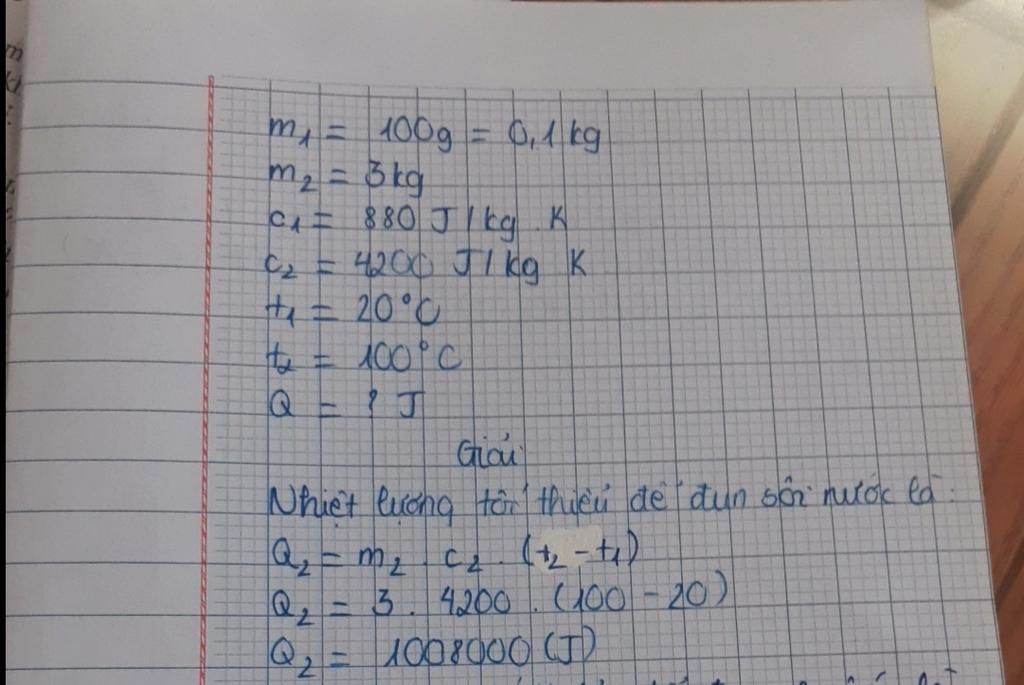 m₁ = 100g = 0,1kg
m₂ = 3kg
c₁ = 880 J/kg.K
c₂ = 4200 J/kg K
t₁ = 20°C
t₂ = 100°C
Q = ? J
Giải
Nhiệt lượng tối thiểu để đun sôi nước là:
Q₂ = m₂ . c₂ . (t₂ - t₁)
Q₂ = 3 . 4200 . (100 - 20)
Q₂ = 1008000 (J)